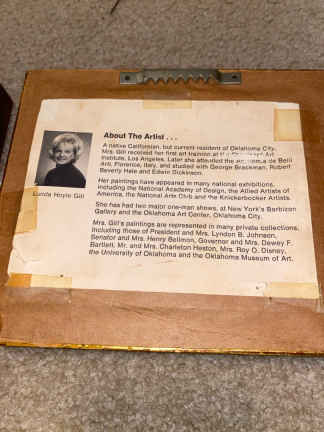 About The Artist . . .
A native Californian, but current resident of Oklahoma City,
Mrs. Gill received her first art training at the Art
Institute, Los Angeles. Later she attended the de Belli
Arti, Florence, Italy, and studied with George Brackman, Robert
Beverly Hale and Edwin Dickinson.
Her paintings have appeared in many national exhibitions,
including the National Academy of Design, the Allied Artists of
America, the National Arts Club and the Knickerbocker Artists.
She has had two major one-man shows, at New York's Barbizon
Gallery and the Oklahoma Art Center, Oklahoma City.
Mrs. Gill's paintings are represented in many private collections,
including those of President and Mrs. Lyndon B. Johnson,
Senator and Mrs. Henry Bellmon, Governor and Mrs. Dewey F.
Bartlett, Mr. and Mrs. Charleton Heston, Mrs. Roy O. Disney,
the University of Oklahoma and the Oklahoma Museum of Art.
Lunda Hoyle Gill